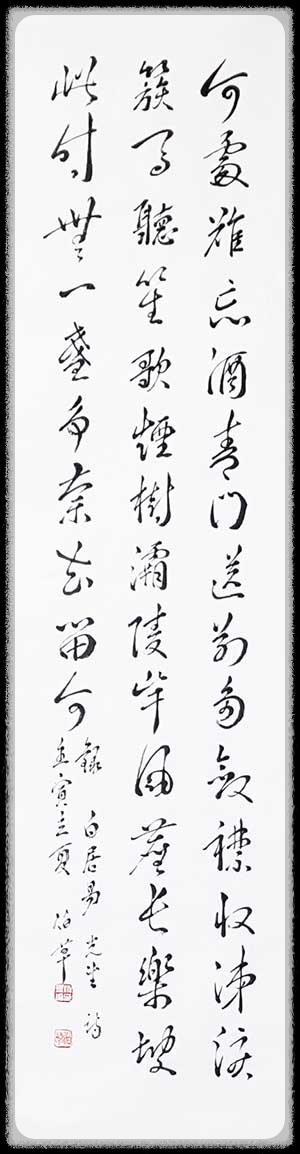 何處難忘酒青門送别多斂襟收涕淚
簇馬聽笙歌煙樹灞陵岸風塵長樂坡
此时無一盞爭奈去留何
錄 白居易先生詩
壬寅立夏